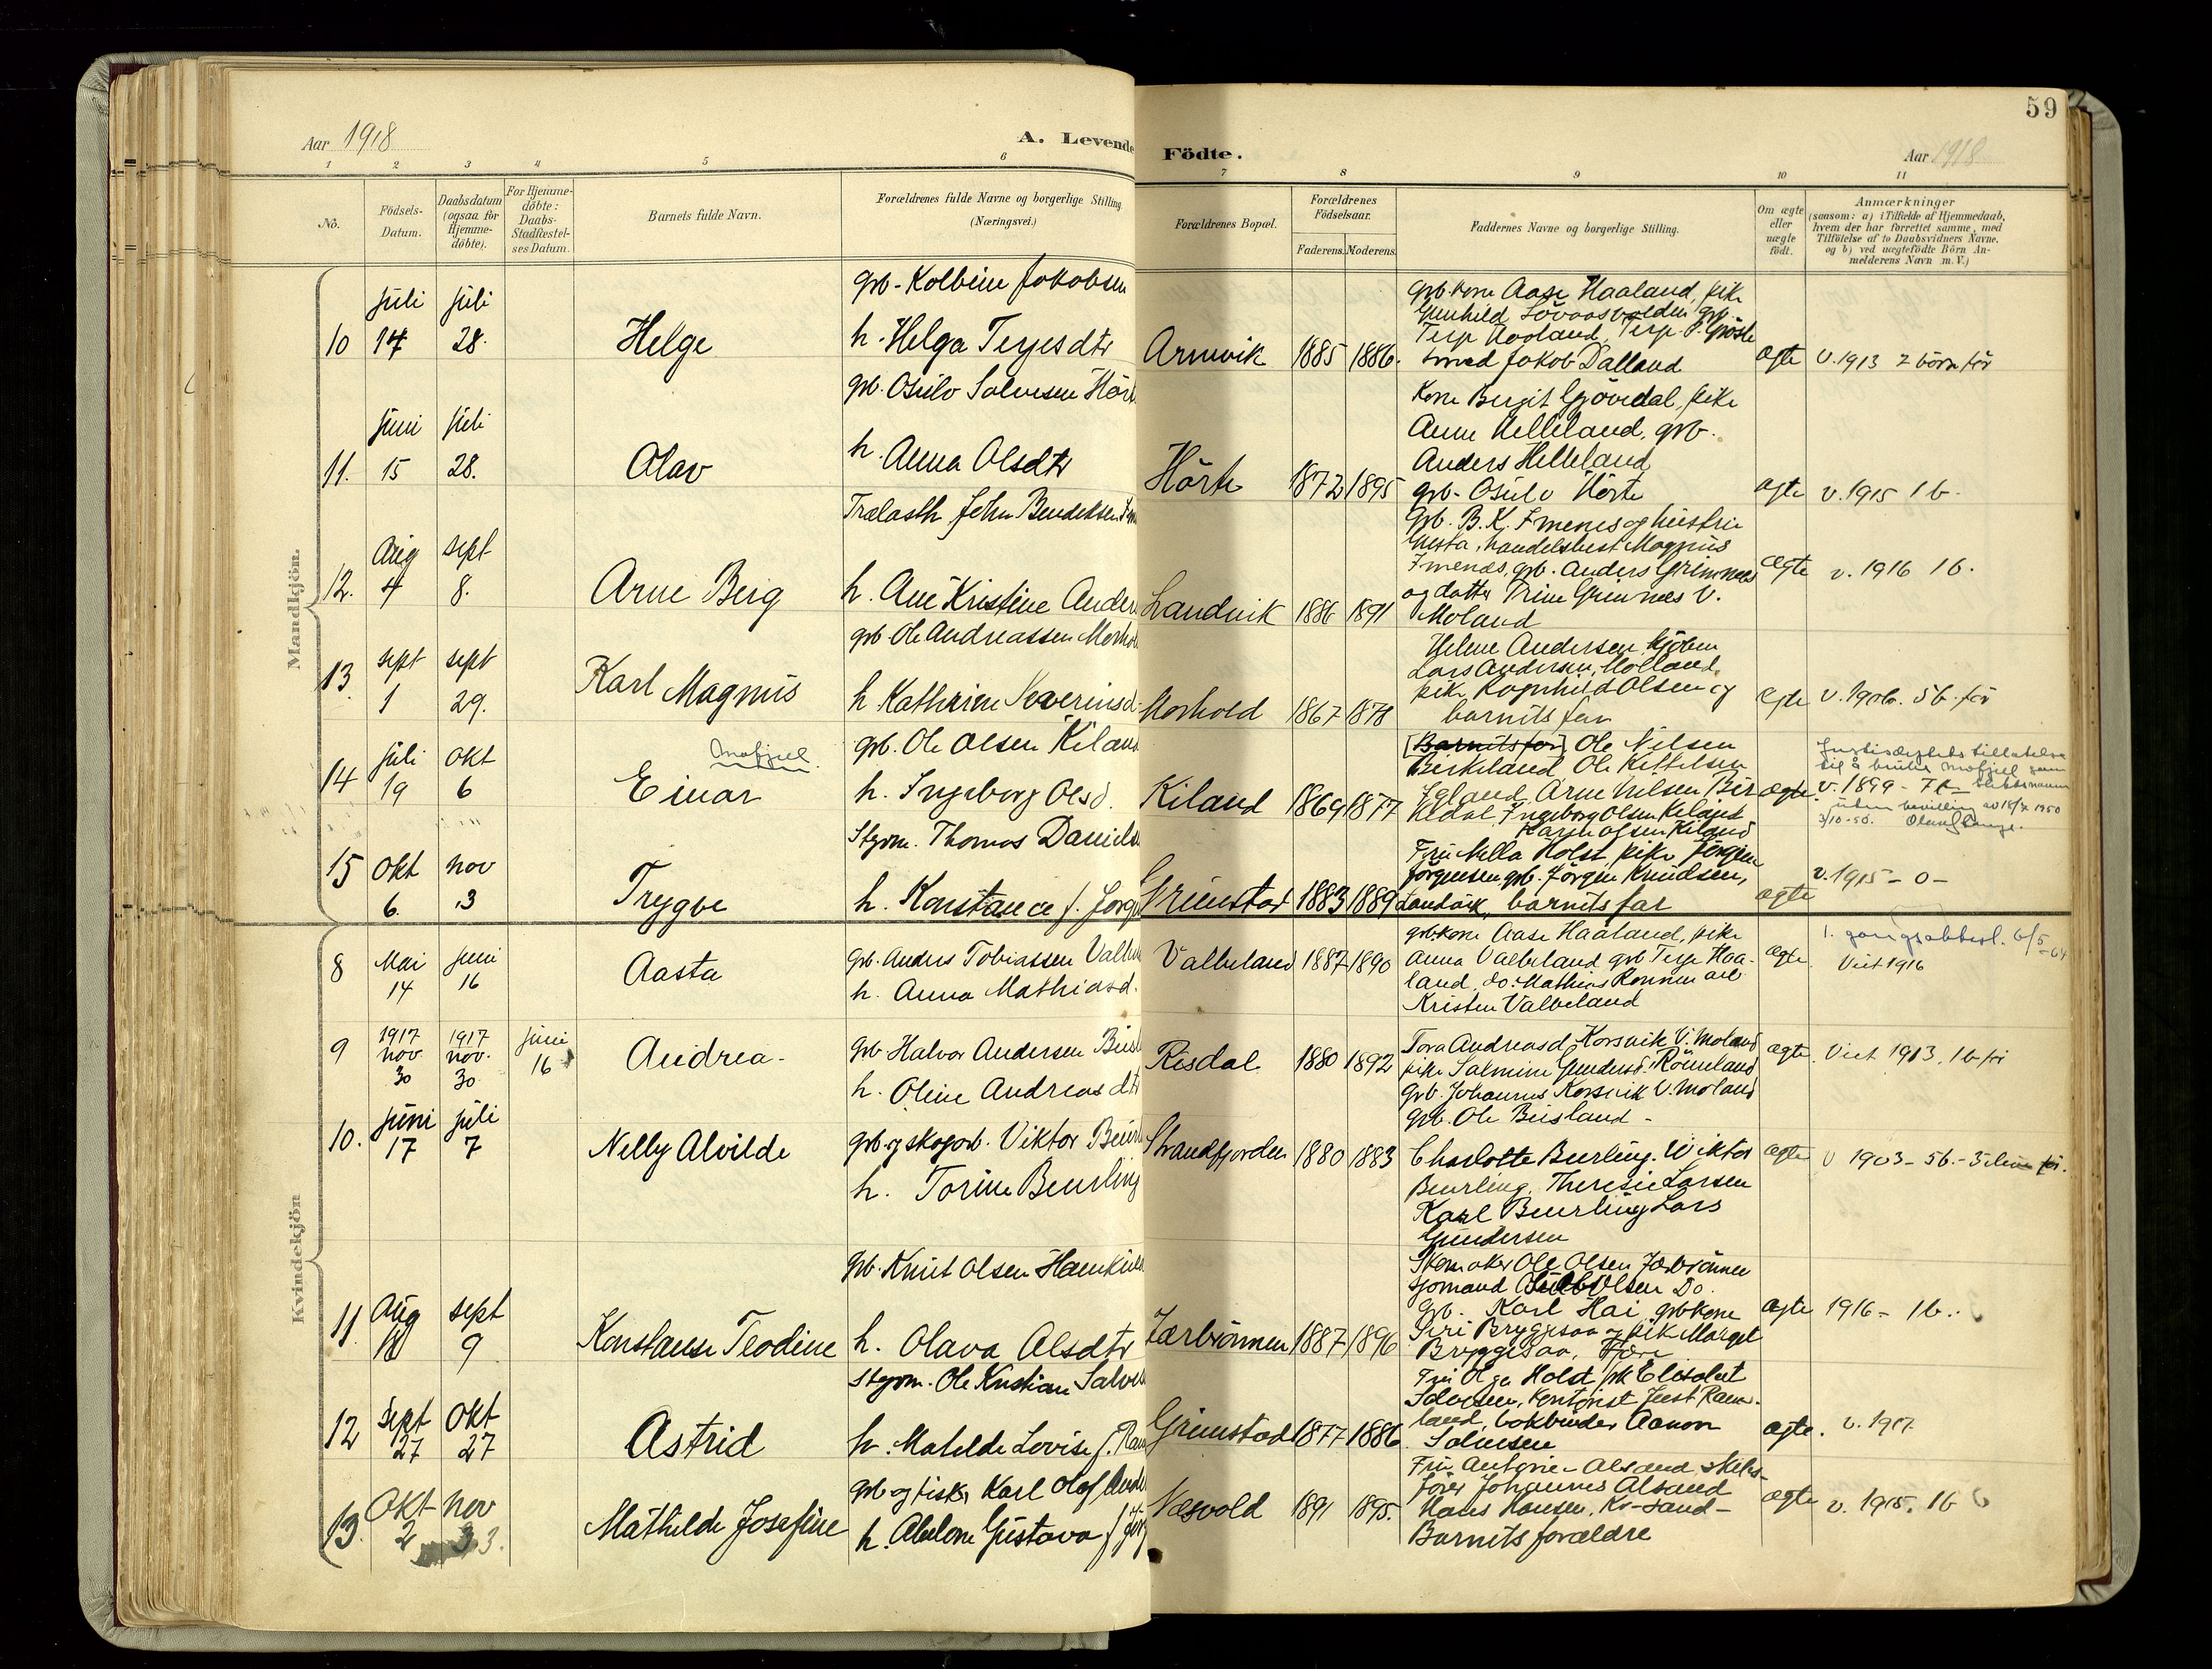 59
Aar 1918
A. Levende Födte.
Aar 1918
1 2 3 4 5 6 7 8 9 10 11
No.
Födsels-Datum.
Daabsdatum (ogsaa for Hjemme-döbte).
For Hjemme-döbte: Daabs-Stadfæstel-ses Datum.
Barnets fulde Navn.
Forældrenes fulde Navne og borgerlige Stilling
(Næringsvei.)
Forældrenes Bopæl.
Forældrenes Födselsaar.
Faderens. Moderens.
Faddernes Navne og borgerlige Stilling.
Om ægte eller uægte födt.
Anmærkninger
(saasom: a) i Tilfælde af Hjemmedaab,
hvem der har forrettet samme, med
Tilföielse af to Daabsvidners Navne,
og b) ved uægtefödte Börn An-
melderens Navn m. V.)
Mandkjön.
10 juli 14 juli 28. Helge
grb. Kolbein Jakobsen
h. Helga Terjesdtr
Arnevik 1885 1886.
grb. kone Aase Haaland, pike
Gunhild
Terje Haaland, Terje
smed Jakob Dalland
ægte v. 1913 2 börn för
11. juni 15 juli 28. Olav
grb. Osulv Salvesen Hört
h. Anna Olsdtr
Hörte 1872 1895
Kone Bergit Gjövedal, pike
Anne Helleland, grb.
Anders Helleland
grb. Osulv Hörte
ægte v. 1915 1 b.
12. Aug 4 sept 8. Arne Berg
Trælasth. John Bendeksen
h. Ane Kristine Ander
Landvik 1886 1891
Grb. B. K. Imenes og hustru
handelsbest Magnus
Imenes, grb. Anders Grimnes
og datter Trine Grimnes V.
Moland
ægte v. 1916 1 b.
13 sept 1 sept 29. Karl Magnus
grb Ole Andreassen Morhol
h Kathrine Severinsd
Morhold 1867 1878
Helene Andersen
Lars Andersen, Molland,
pike Ragnhild Olsen og
barnets far
ægte v. 1906. 5 b. för
14 juli 19 okt 6 Einar Mofjeld
grb. Ole Olsen Kiland
h. Ingeborg Olsd.
Kiland 1869 1877
[Barnets far] Ole Nilsen
Birkeland Ole Kittelsen
Igland, Arne Nilsen Bir
kedal, Ingeborg Olsen Kiland
Karen Olsen Kiland
ægte v. 1899 - 7 b
tillatelse
til å bruke Mofjeld som
slektsnavn
uten bevilling av 1950
3/10-50. Olav
15 okt 6. nov 3 Trygve
Styrm. Thomas Daniels
h. Konstance f. Jörg
Grimstad 1883 1889
Fru Nella Holst, pike Jörgine
Jörgensen, grb. Jörgen Knudsen,
Landvik, barnets far
ægte v. 1915 - 0 -
Kvindekjön
8 Mai 14 juni 16 Aasta
grb. Anders Tobiassen Valbe
h. Anna Mathiasd.
Valbeland 1887 1890
grb. kone Aase Haaland, pike
Anna Valbeland grb Terje Haa-
land, do. Mathias Ronnen arb
Kristen Valbeland
ægte
6/5-64
Viet 1916
9 1917 nov. 30 1917 nov. 30 juni 16 Andrea-
grb Halvor Andersen Beisl
h. Oline Andreasdtr
Risdal 1880 1892
Tora Andreasd. Korsvik V. Moland
pike Salmine Gundersd. Römeland
grb. Johannes Korsvik V. Moland
grb. Ole Beisland -
ægte Viet 1913, 1 b för
10. juni 17 juli 7 Nelly Alvilde
grb. og skogarb. Viktor Beurl
h. Torine Beurling
Strandfjorden 1880 1883
Charlotte Beurling. Wiktor
Beurling, Theresie Larsen
Karl Beurling Lars
Gundersen
ægte v 1903 - 5 b. - 3 för.
11 Aug sept 9 Konstanse Teodine
grb. Knut Olsen
h. Olava Olsdtr
Tærbrönnen 1887 1896
Skomaker Ole Olsen Tærbrönnen
sjömand Olsen Do.
Grb. Karl Hai, grb kone
Siri Bryggesaa og pike Marget
Bryggesaa, Fjære
ægte 1916 - 1 b.
12 sept 27 okt 27 Astrid
Styrm. Ole Kristian Salve
h. Mathilde Lovise f. Ram
Grimstad 1877 1886
Fru Olga Holst frk Elisabet
Salvesen, kontorist Just Ram-
land, bokbinder Aanon
Salvesen
ægte. v. 1917
13. okt 2 nov 3 3. Mathilde Josefine
grb og fisker Karl Olaf Ande
h. Abelone Gustava f. Jörg
Væsvold 1891 1895.
Fru Antonie Alsand skibs-
förer Johannes Alsand
Hans Hansen, Kr-sand -
Barnets forældre
ægte v. 1915. 1 b